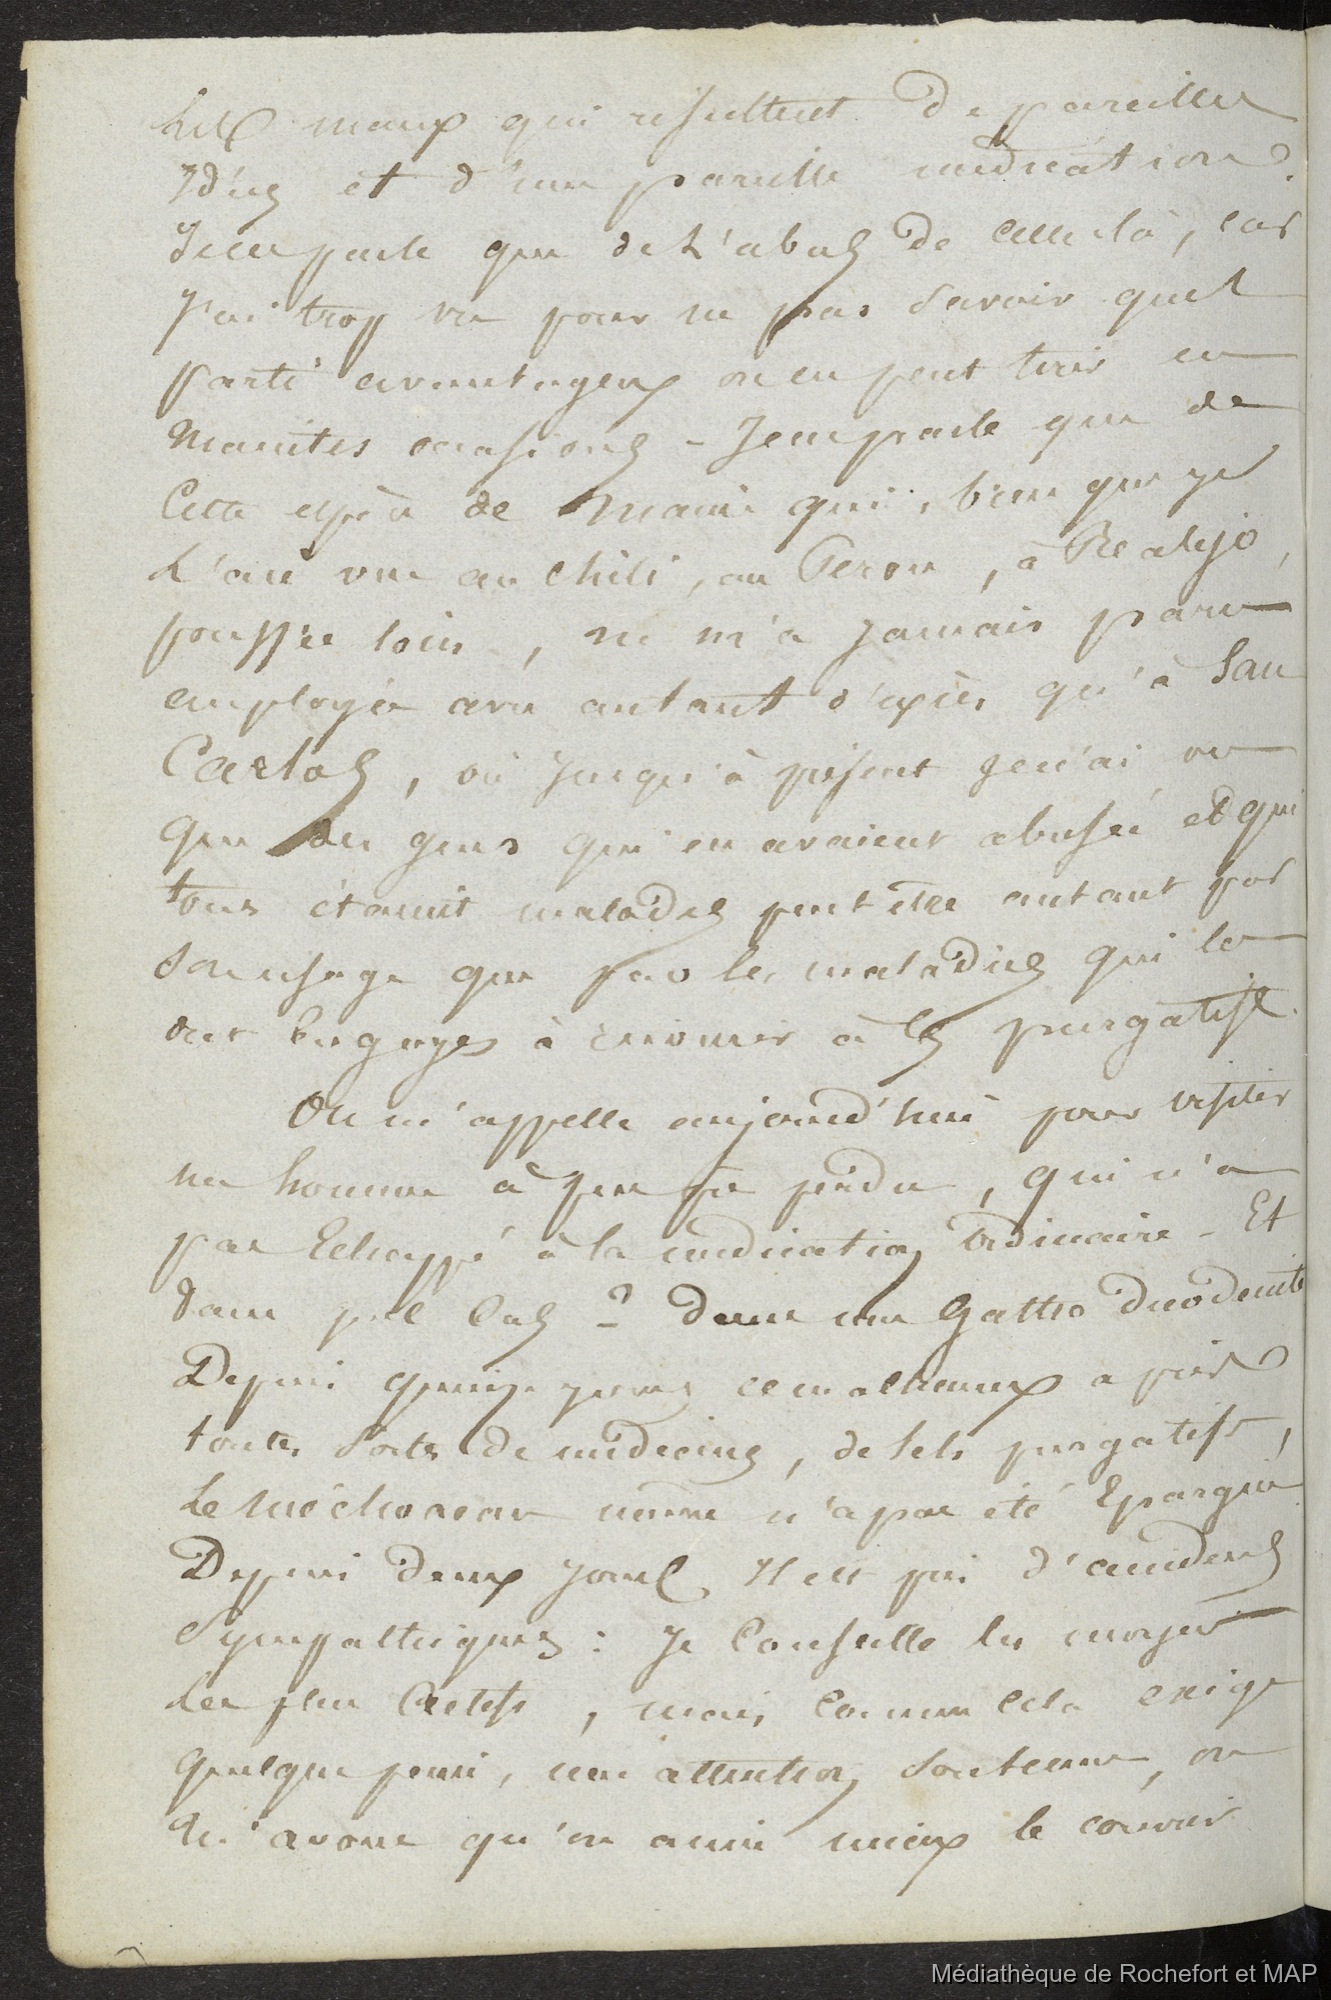 Les maux qui resultent de pareilles
Idées et d'une pareille medication.
Je ne parle que de L'abus de celle là, car
J'ai trop vu pour ne pas savoir quel
parti avantageux on en peut tirer en
Maintes occasions - Je ne parle que de
Cette espèce de Manie qui, bien que je
L'aie vue au Chili, au Perou, à Realejo,
poussée loin, ne m'a jamais paru
employée avec autant d'excès qu'à San
Carlos, où jusqu'à présent je n'ai vu
que des gens qui en avaient abusé et qui
tous étaient malades peut être autant par
son usage que par les maladies qui les
ont Engagés à recourir à les purgatifs.
On m'appelle aujourd'hui pour visiter
un homme à peu près perdu, qui n'a
pas Echappé à la medication ordinaire - Et
dans quel Cas ? dans une Gastro duodenite
Depuis quinze jours ce malheureux a pris
toutes sortes de medecines, de sels purgatifs,
Le Méchoacan même n'a pas été Epargné
Depuis deux jours Il est pris d'accidents
Sympathiques : Je Conseille les moyens
Les plus Actifs, mais comme cela exige
quelque peine, une attention soutenue, on
m'avoue qu'on aime mieux le couvrir
Médiathèque de Rochefort et MAP